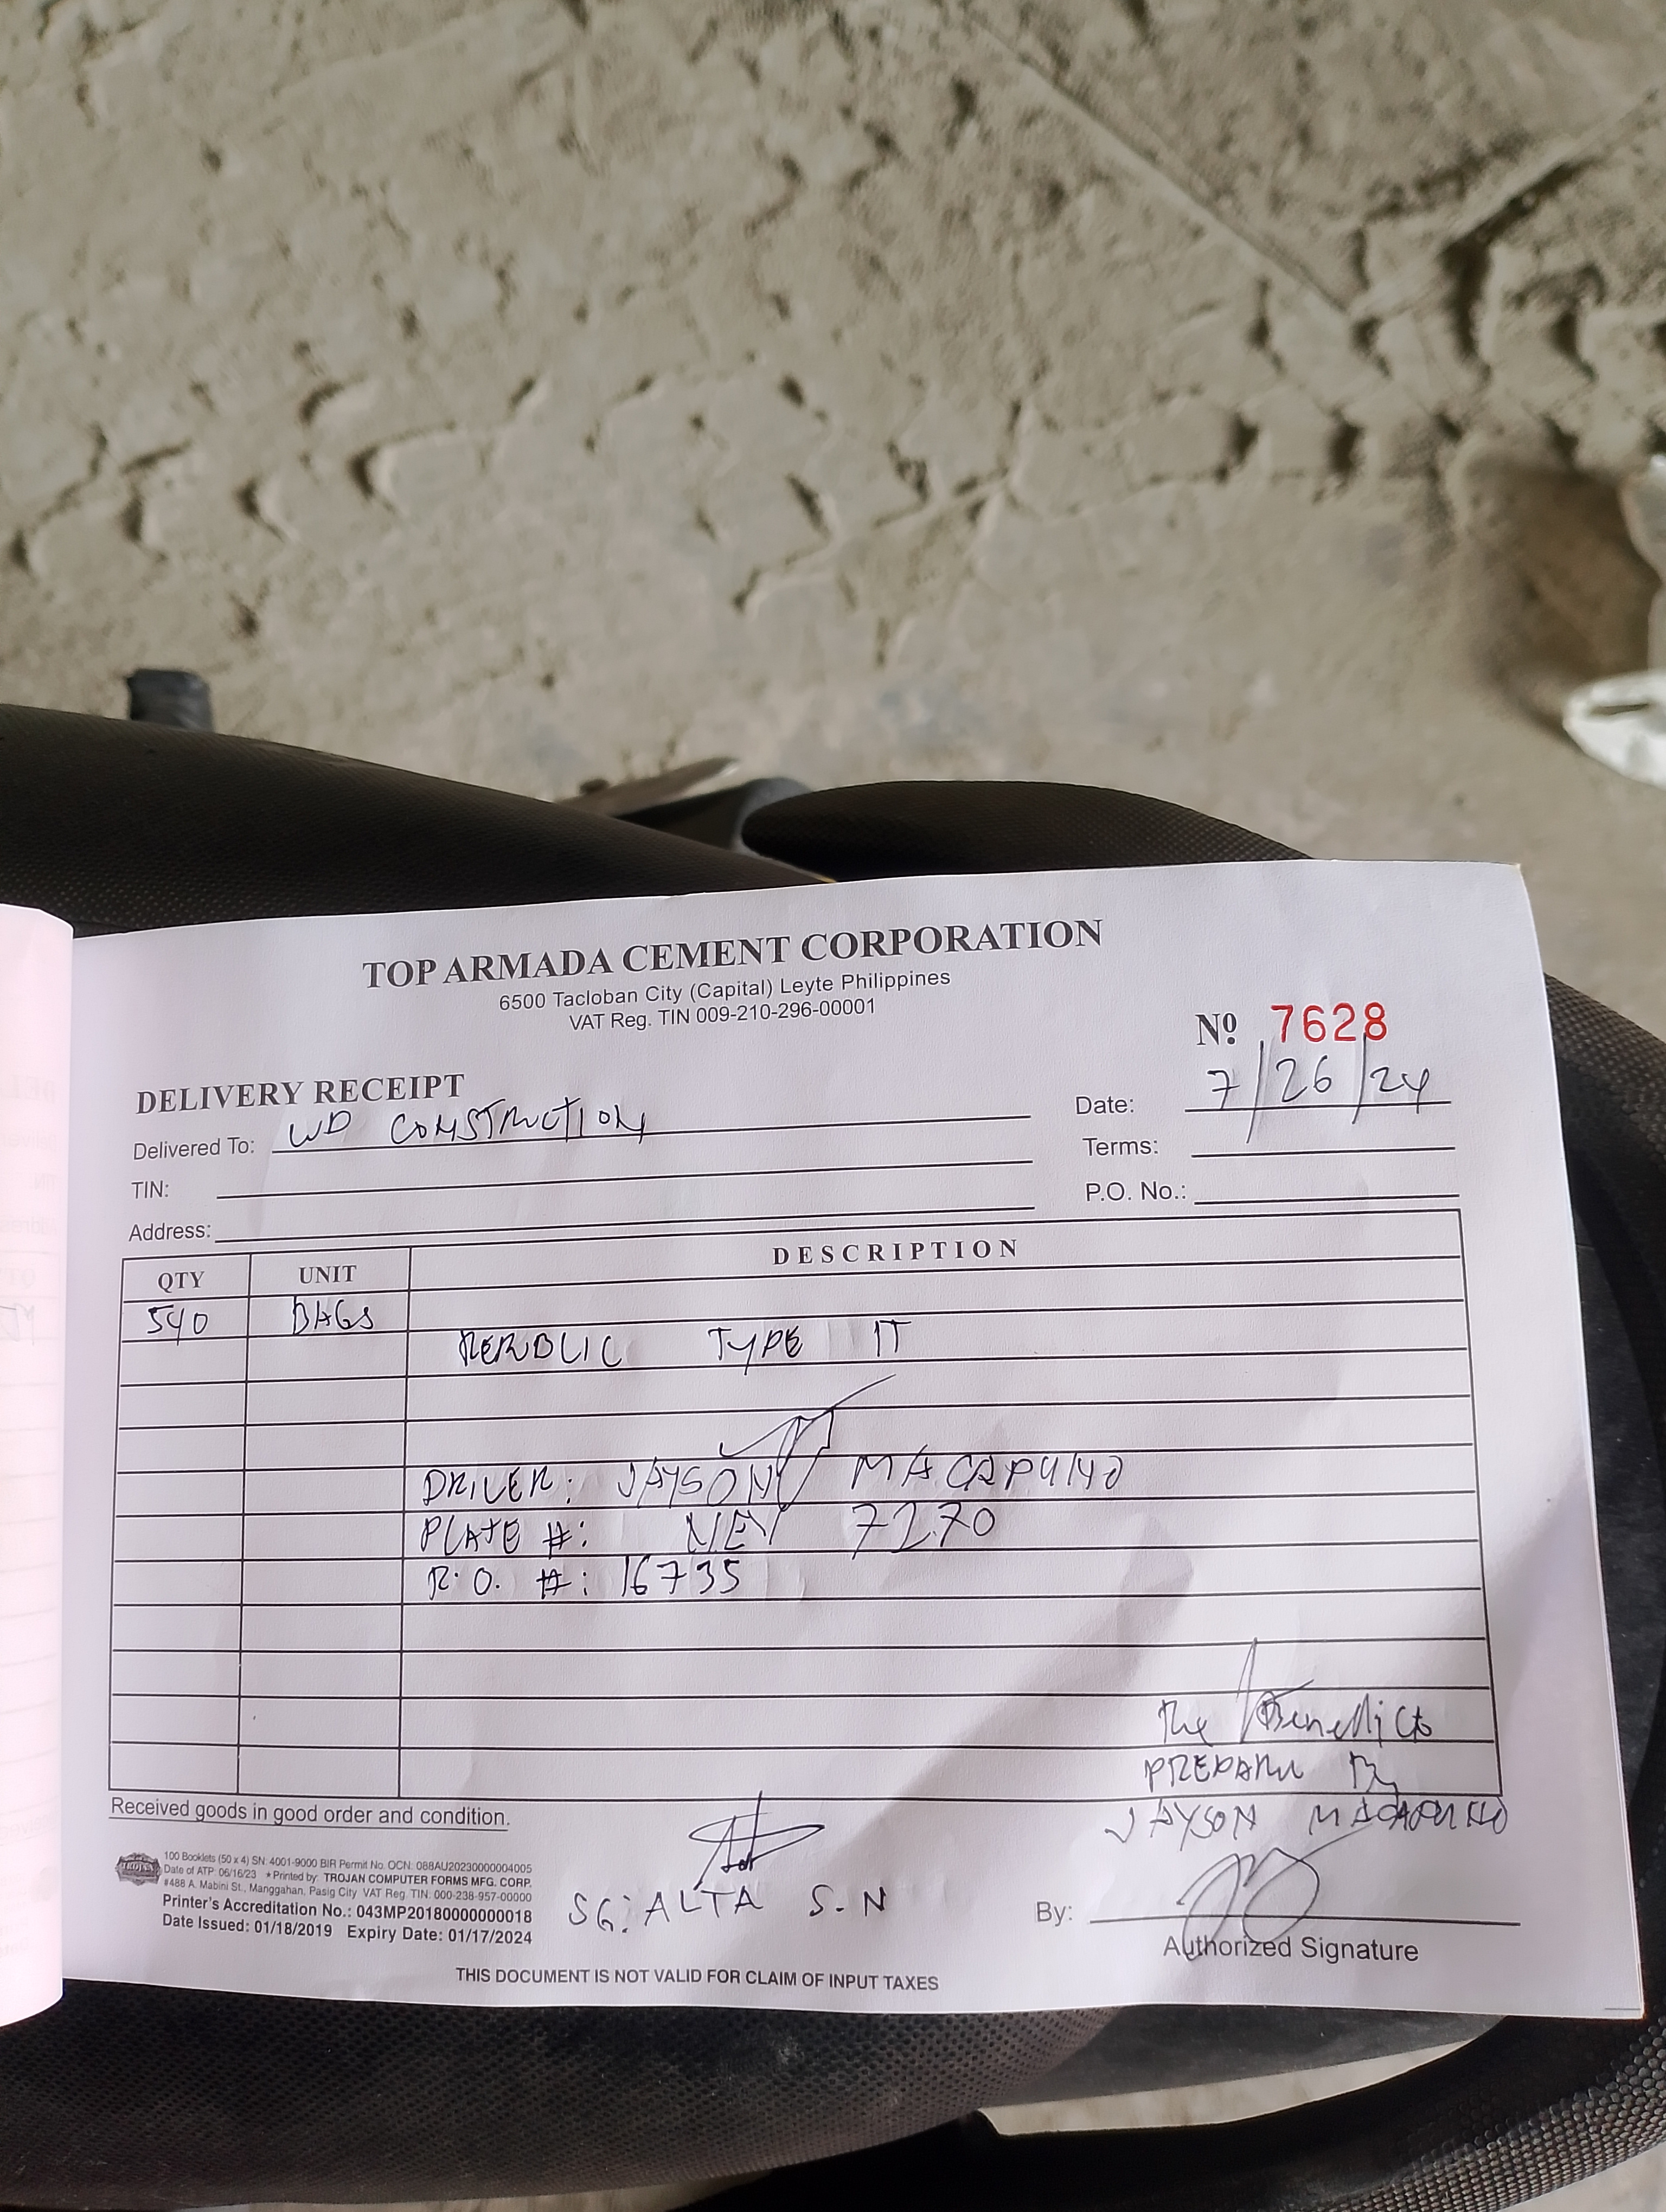 TOP ARMADA CEMENT CORPORATION
6500 Tacloban City (Capital) Leyte Philippines
VAT Reg. TIN 009-210-296-00001
Nº 7628
DELIVERY RECEIPT
Date: 7/26/24
Delivered To: WD CONSTRUCTION
Terms:
TIN:
P.O. No.:
Address:
QTY UNIT DESCRIPTION
540 BAGS
REPUBLIC TYPE 1T
DRIVER: JAYSON MACAPUNO
PLATE #: NEY 7270
R.O. #: 16735
The Benedicts
PREPARE By
JAYSON MACAPUNO
Received goods in good order and condition.
100 Booklets (50 x 4) SN: 4001-9000 BIR Permit No. OCN: 088AU20230000004005
Date of ATP: 06/16/23 ★Printed by: TROJAN COMPUTER FORMS MFG. CORP.
#488 A. Mabini St., Manggahan, Pasig City VAT Reg. TIN: 000-238-957-00000
Printer's Accreditation No.: 043MP20180000000018
Date Issued: 01/18/2019 Expiry Date: 01/17/2024
SG: ALTA S.N
By:
Authorized Signature
THIS DOCUMENT IS NOT VALID FOR CLAIM OF INPUT TAXES